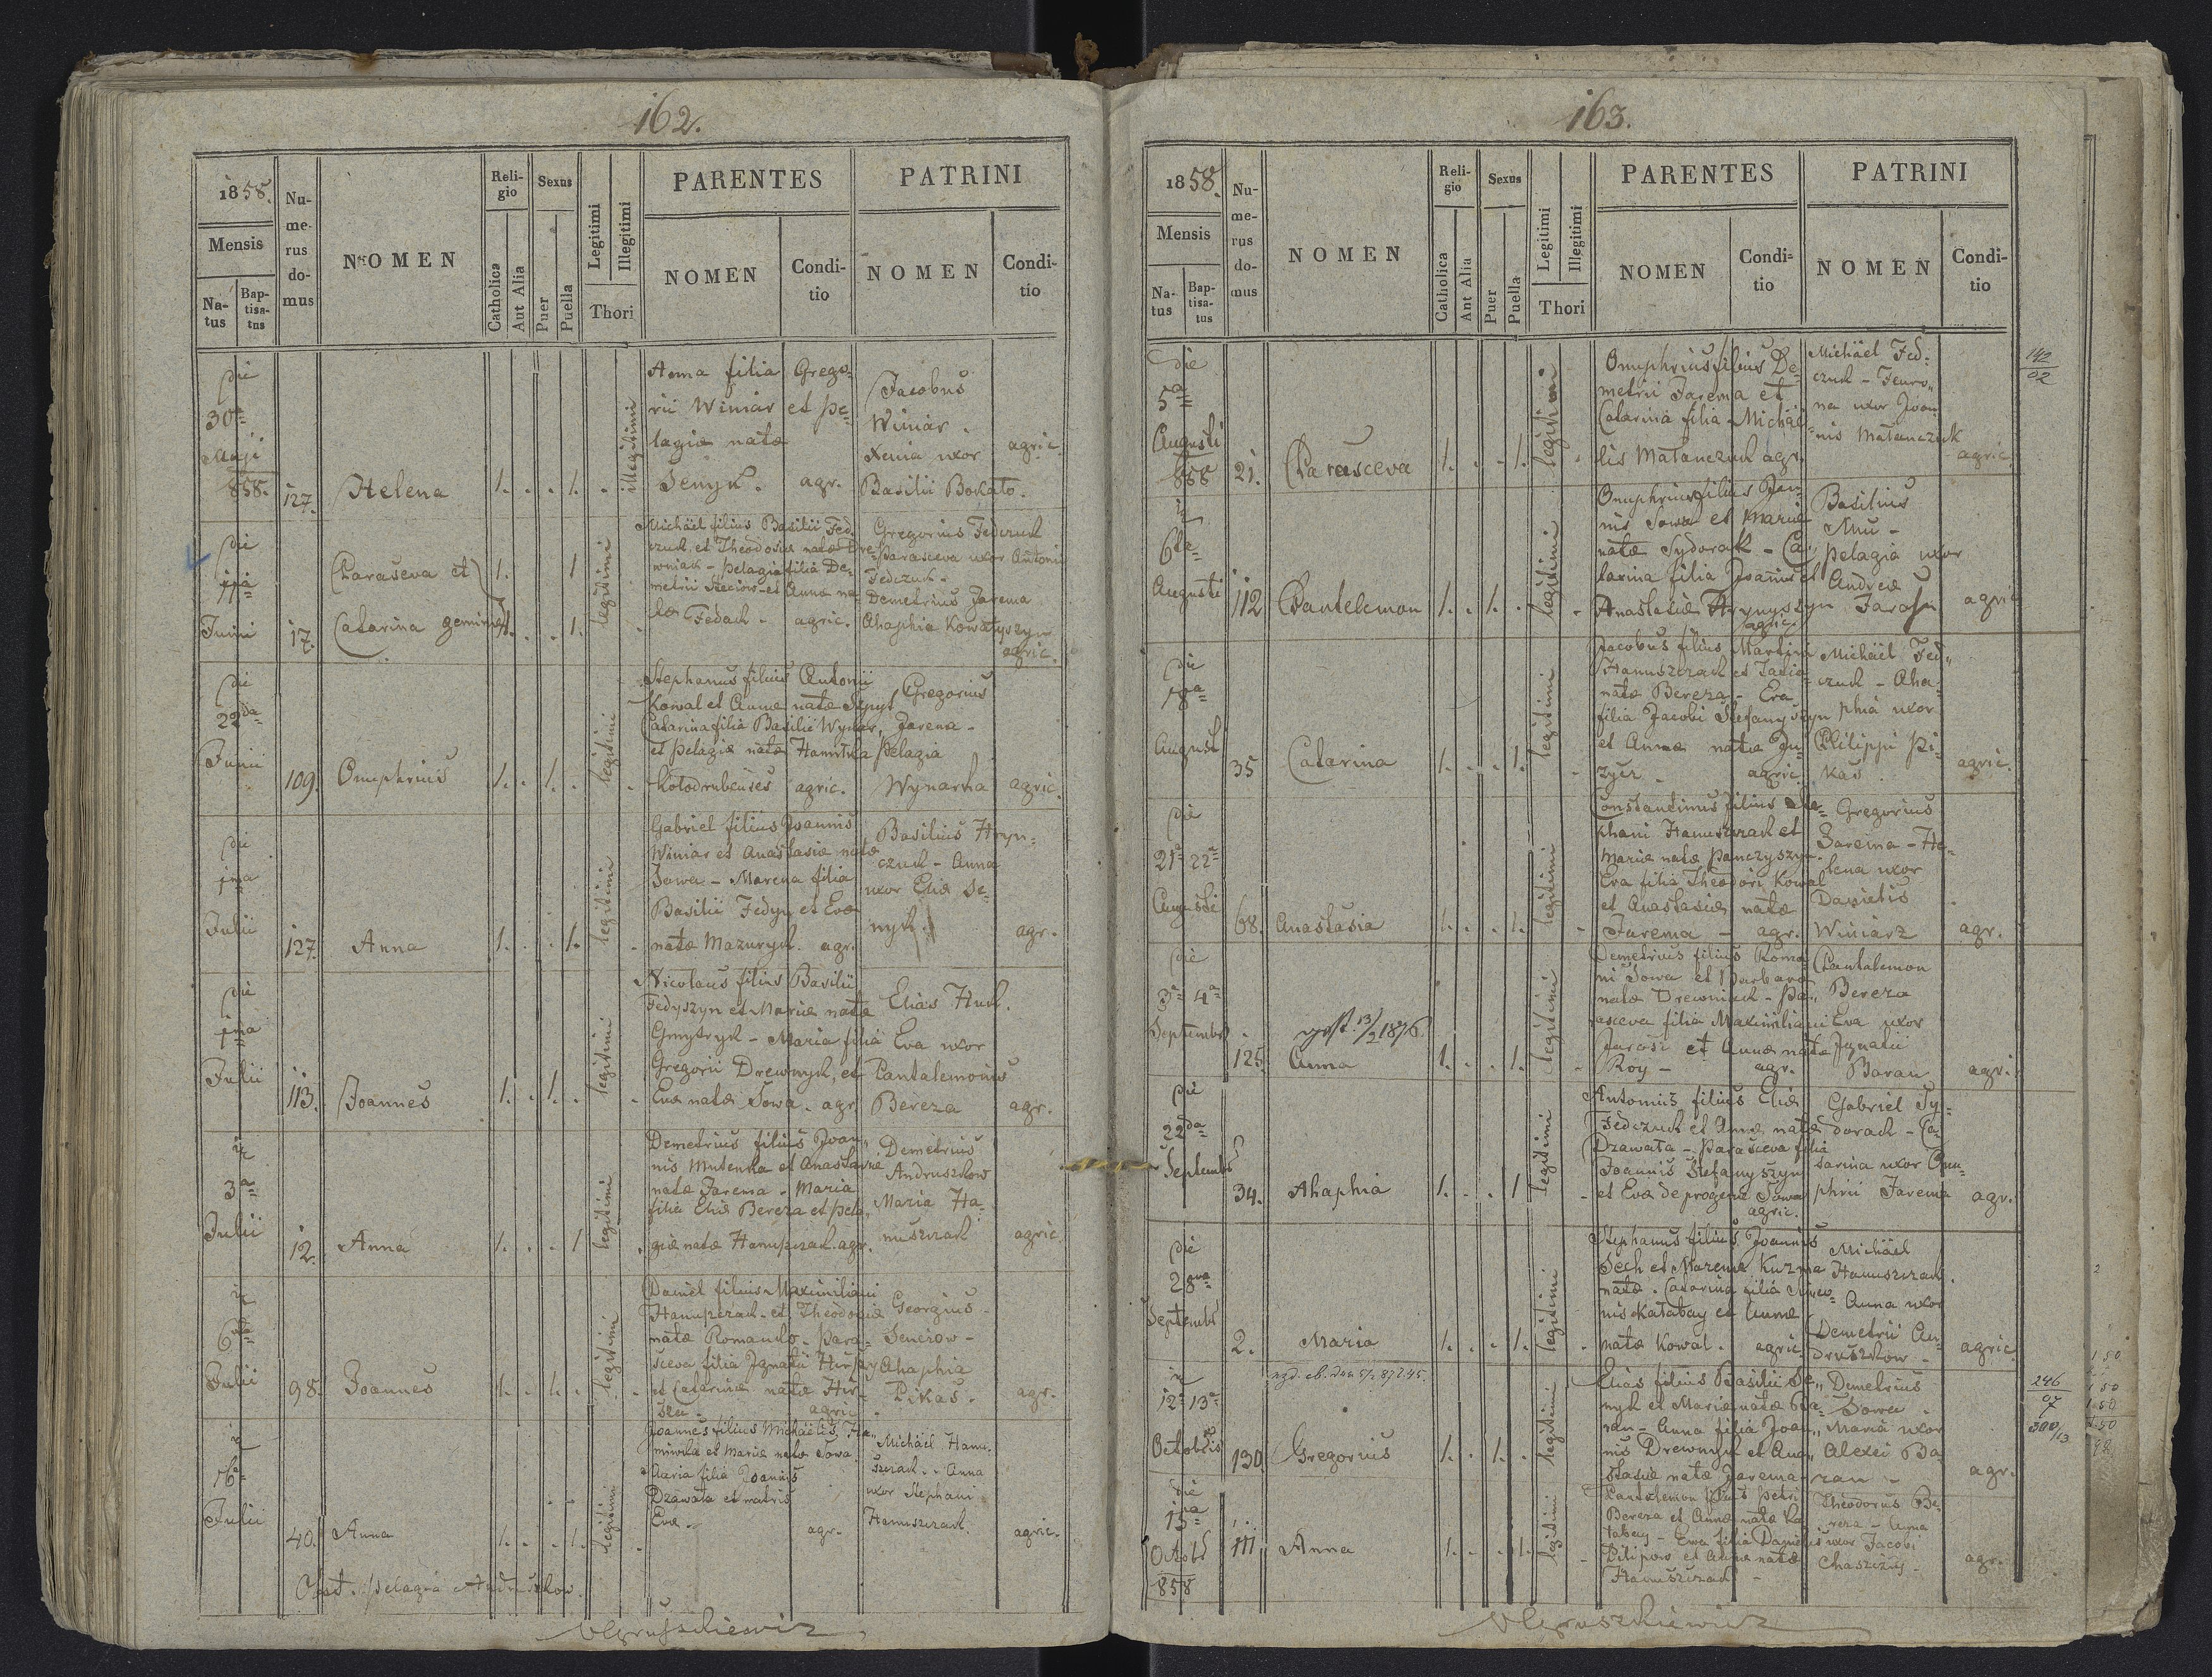 162.
1858.
Mensis
Na-
tus
Bap-
tisa-
tus
Nu-
me-
rus
do-
mus
NOMEN
Reli-
gio
Catholica
Aut Alia
Sexus
Puer
Puella
Legitimi
Illegitimi
Thori
PARENTES
NOMEN
Condi-
tio
PATRINI
NOMEN
Condi-
tio
die
30a
Maji
858.
127.
Helena
1. . . 1. .
illegitimi
Anna filia Grego=
rii Winiar et Pe=
lagiæ natæ
Senyk. agr.
Jacobus
Winiar.
Xenia uxor
Basilii Bokato.
agric.
die
11a
Junii
17.
Parasceva et
Catarina gemin
1. 1
1. . . 1.
legitimi
Michael filius Basilii Fed.
czuk, et Theodosiæ natæ Dre=
wniak - Pelagia filia De=
metrii Steciow - et Annæ na=
tæ Fedak - agric.
Gregorius Fedczuk
Parasceva uxor Antonii
Fedczuk -
Demetrius Jarema
Ahaphia Kowalyszyn
agric.
die
22da
Junii
109.
Onuphrius
1. . 1. .
legitimi
Stephanus filius Antonii
Kowal et Annæ natæ Szpyt
Catarina filia Basilii Wynar,
et Pelagiæ natæ
Kolodrubenses agric.
Gregorius
Jarema -
Pelagia
Wynarka
agric.
die
1ma
Julii
127.
Anna
1. . . 1.
legitimi
Gabriel filius Joannis
Winiar et Anastasiæ natæ
Sowa - Marena filia
Basilii Fedyn et Evæ
natæ Mazuryk. agr.
Basilius Hryn=
czuk - Anna
uxor Eliæ Se=
nyk.
agr.
die
1ma
Julii
113.
Joannes
1. . 1. .
legitimi
Nicolaus filius Basilii
Fedyszyn et Mariæ natæ
Gmytryk - Maria filia
Gregorii Drewnyk, et
Evæ natæ Sowa. agr.
Elias Huk.
Eva uxor
Pantalemonis
Bereza
agr.
3a
Julii
12.
Anna
1. . . 1
legitimi
Demetrius filius Joan=
nis Mutenka et Anastasiæ
natæ Jarema - Maria
filia Eliæ Bereza et Pela
giæ natæ Hanuszczak. agr.
Demetrius
Andruszkow
Maria Ha=
nuszczak
agric.
6ta
Julii
98.
Joannes
1. . 1. .
legitimi
Daniel filius Maximiliani
Hanuszczak - et Theodosiæ
natæ Romanko - Para=
sceva filia Ignatii
et Catarinæ natæ
agric.
Georgius
Senczow -
Ahaphia
Pikas.
agr.
16a
Julii
40.
Anna
1. . . 1.
legitimi
Joannes filius Michaëlis
et Mariæ natæ Sowa.
Maria filia Joannis
Dzawala et matris
Evæ. agr.
Michaël Hanu=
szczak. Anna
uxor Stephani
Hanuszczak.
agric.
Obst. Pelagia Andruszkow.
163.
1858.
Mensis
Na-
tus
Bap-
tisa-
tus
Nu-
me-
rus
do-
mus
NOMEN
Reli-
gio
Catholica
Aut Alia
Sexus
Puer
Puella
Legitimi
Illegitimi
Thori
PARENTES
NOMEN
Condi-
tio
PATRINI
NOMEN
Condi-
tio
die
5a
Augusti
858
21.
Parasceva
1. . . 1.
legitimi
Onuphrius filius De=
metrii Jarema et
Catarina filia Michaë
lis Matanczuk agr.
Michaël Fed=
czuk -
na uxor Joan
nis Matanczuk
agric.
142
02
6ta
Augusti
112
Pantelemon
1. . 1. .
legitimi
Onuphrius filius Joan=
nis Sowa et Mariæ
natæ Sydorak - Ca=
tarina filia Joannis et
Anastasiæ Hrynyszyn
agric.
Basilius
Pelagia uxor
Andreæ
agric
die
18a
August
35
Catarina
1. . . 1.
legitimi
Jacobus filius Martini
Hanuszczak et
natæ Bereza - Eva
filia Jacobi Stefanyszyn
et Annæ natæ
agric.
Michaël Fed=
czuk - Aha=
phia uxor
Philippi Pi=
kas.
agric.
die
21a 22a
Augusti
68.
Anastasia
1. . . 1.
legitimi
Constantinus filius Ste=
phani Hanuszczak et
Mariæ natæ Panczyszyn
Eva filia Theodori Kowal
et Anastasiæ natæ
Jarema - agr.
Gregorius
Jarema - He=
lena uxor
Danielis
Winiarz
agr.
die
3a 4a
Septembr
125.
Anna
1. . . 1.
legitimi
Demetrius filius Roma=
ni Sowa et Barbaræ
natæ Drewniak - Pa=
rasceva filia Maximiliani
Jarosz et Annæ natæ
Roy - agr.
Pantalemon
Bereza
Eva uxor
Ignatii
Baran
agr.
die
22da
Septembr
34.
Ahaphia
1. . . 1
legitimi
Antonius filius Eliæ
Fedczuk et Annæ natæ
Dzawala - Parasceva filia
Joannis Stefanyszyn
et Evæ de progenie Sowa
agric.
Gabriel Sy=
dorak - Ca=
tarina uxor Onu=
phrii Jarema
agr.
die
28va
Septembr
2.
Maria
1. . . 1.
legitimi
Stephanus filius Joannis
Sech et Marenæ Kuzma
natæ. Catarina filia Simeo=
nis Katabay et Annæ
natæ Kowal. agric.
Michaël
Hanuszczak.
Anna uxor
Demetrii An=
druszkow.
agric.
12a 13a
Octobris
130.
Gregorius
1. . 1. .
legitimi
Elias filius Basilii Se=
nyk et Mariæ natæ Ba=
ran - Anna filia Joan=
nis Drewnyk et Ana=
stasiæ natæ Jarema
Demetrius
Sowa.
Maria uxor
Alexei Ba=
ran -
agr.
246
07
300/13
die
15a
Octobr
858
111
Anna
1. . . 1.
legitimi
Pantelemon filius Petri
Bereza et Annæ natæ Ka
tabay - Eva filia Danielis
Pilipow et Annæ natæ
Hanuszczak -
Theodorus Be=
reza - Anna
uxor Jacobi
agr.